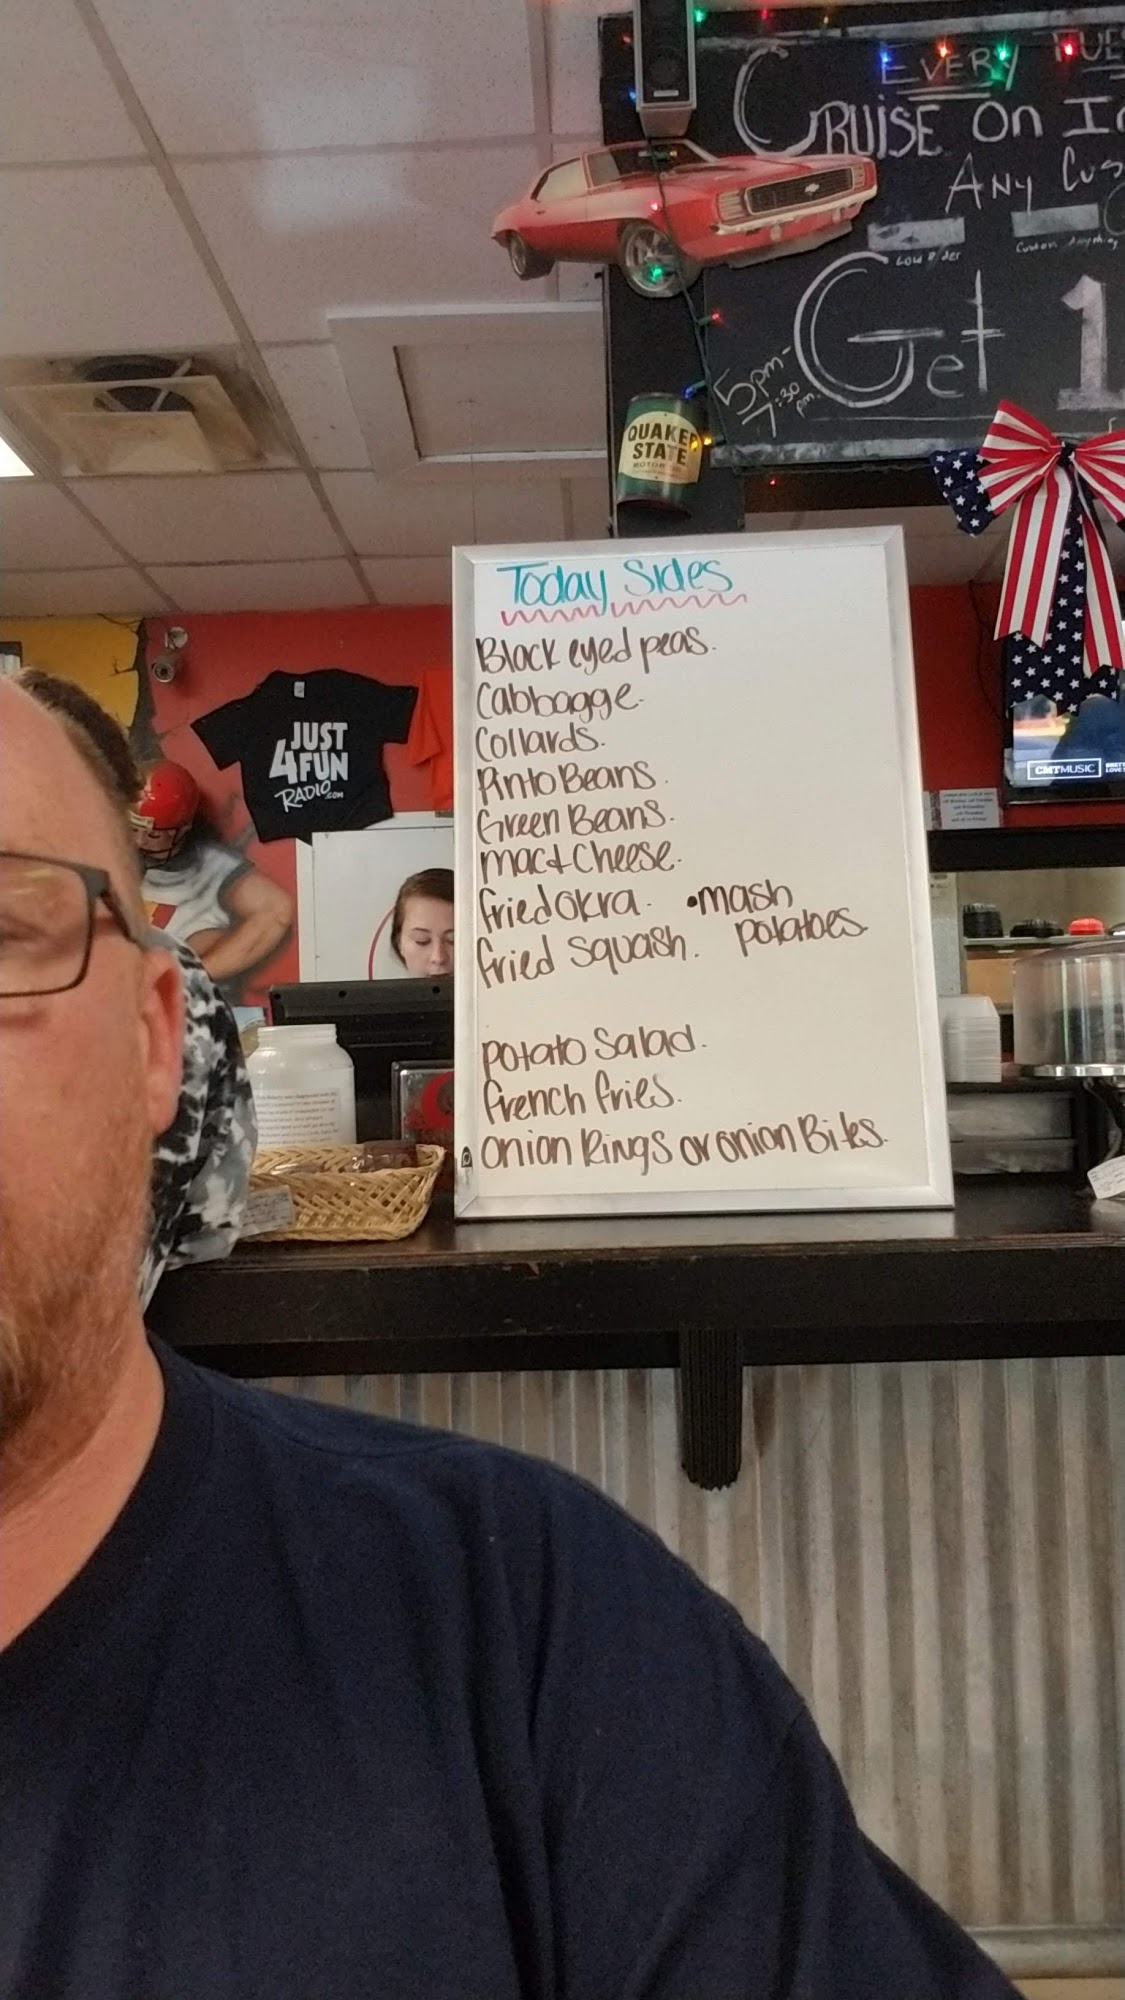 EVERY TUES
CRUISE On In
Any Cus
Low Rider
Custom Anything
Get 1
5pm-
7:30 pm.
QUAKER
STATE
MOTOR OIL
Today Sides
Black eyed peas.
Cabbagge.
Collards.
Pinto Beans.
Green Beans.
mac+Cheese.
fried Okra. •mash
fried squash. potatoes
potato Salad.
french fries.
onion Rings or onion Bites.
JUST
4FUN
RADIO.COM
CMTMUSIC